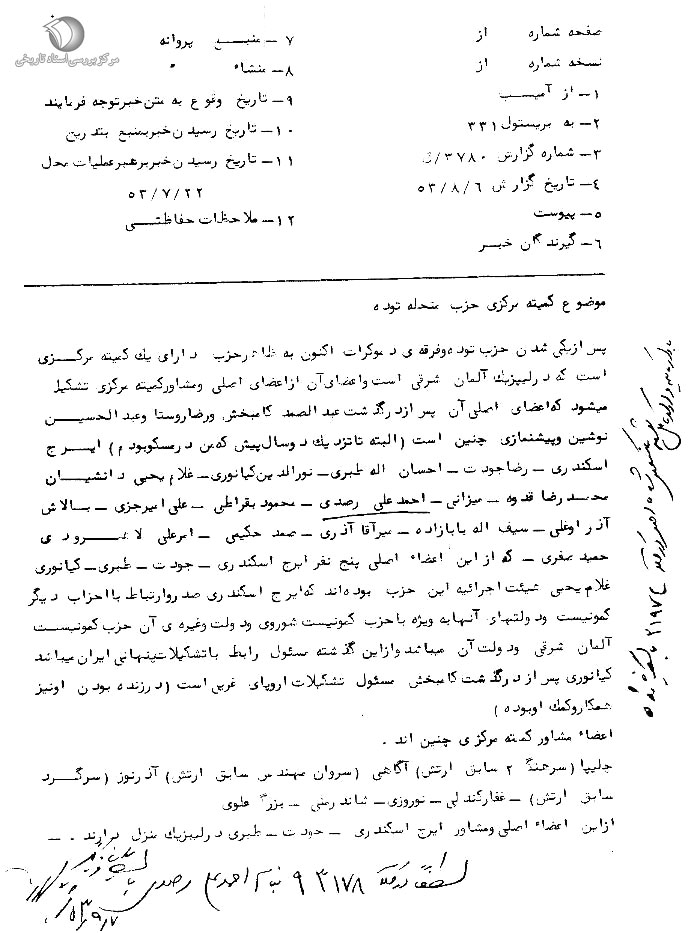 مرکز بررسی اسناد تاریخی
صفحه شماره از
نسخه شماره از
۱- از آمیب
۲- به بریستول ۳۳۱
۳- شماره گزارش ۳۷۸۰/
۴- تاریخ گزارش ۵۳/۸/۶
۵- پیوست
۶- گیرندگان خبر
۷- منبع پروانه
۸- منشاء "
۹- تاریخ وقوع به متن خبر توجه فرمایند
۱۰- تاریخ رسیدن خبر بمنبع بتدریج
۱۱- تاریخ رسیدن خبر برهبر عملیات محل
۵۳/۷/۲۲
۱۲- ملاحظات حفاظتی
موضوع کمیته مرکزی حزب منحله توده
پس از یکی شدن حزب توده وفرقه ی دموکرات اکنون به ظاهر حزب دارای یك کمیته مرکزی
است که در لیپزیك آلمان شرقی است واعضای آن از اعضای اصلی ومشاور کمیته مرکزی تشکیل
میشود که اعضای اصلی آن پس از درگذشت عبد الصمد کامبخش ورضا روستا وعبد الحسین
نوشین وپیشنمازی چنین است (البته تا نزدیك دوسال پیش که من در مسکو بودم) ایرج
اسکندری - رضا جودت - احسان اله طبری - نورالدین کیانوری - غلام یحیی دانشیان
محمد رضا قدوه - میزانی - احمد علی رصدی - محمود بقراطی - علی امیرخیزی - بالاش
آذر اوغلی - سیف اله بابازاده - میرآقا آذری - صمد حکیمی - امیرعلی لاهرودی
حمید صفری - که از این اعضاء اصلی پنج نفر ایرج اسکندری - جودت - طبری - کیانوری
غلام یحیی هیئت اجرائیه این حزب بوده اند که ایرج اسکندری صدر وارتباط با احزاب دیگر
کمونیست ودولتهای آنها به ویژه با حزب کمونیست شوروی ودولت وغیره ی آن حزب کمونیست
آلمان شرقی ودولت آن میباشد واز این گذشته مسئول رابط با تشکیلات پنهانی ایران میباشد
کیانوری پس از درگذشت کامبخش مسئول تشکیلات اروپای غربی است (در زنده بودن او نیز
همکار وکمك او بوده)
اعضاء مشاور کمیته مرکزی چنین اند .
چلیپا (سرهنگ ۲ سابق ارتش) آگاهی (سروان مهندس سابق ارتش) آذرنور (سرگرد
سابق ارتش) - غفار کندلی - نوروزی - شاندرمنی - بزرگ علوی
از این اعضاء اصلی ومشاور ایرج اسکندری - جودت - طبری در لیپزیك منزل دارند . -
لطفاً در کلاسه ۹۳۱۷۸ بنام احمد علی رصدی